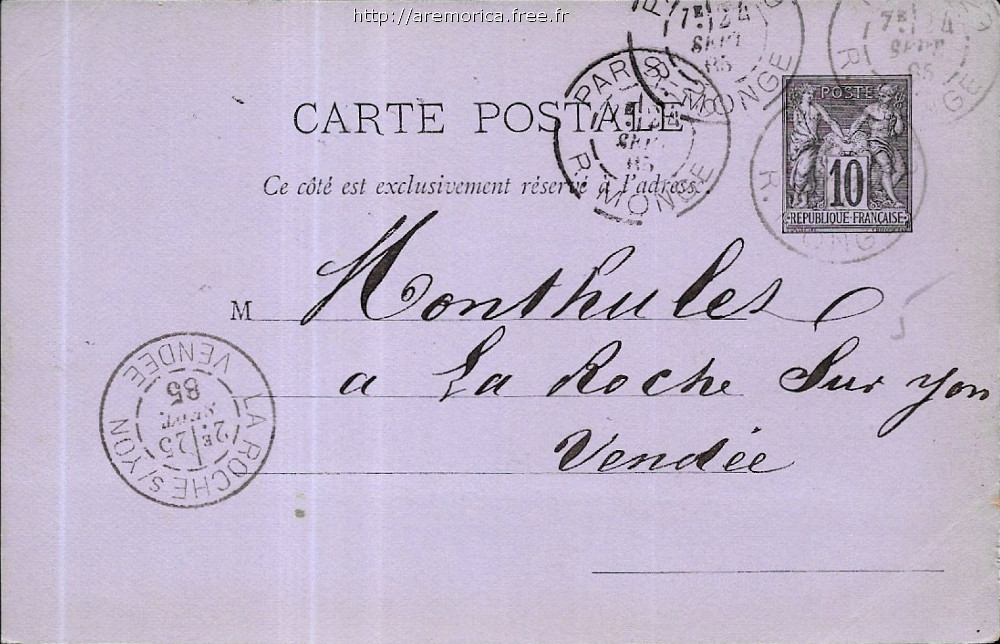 http://aremorica.free.fr
7E 24
SEPT
85
R. MONGE
PARIS
R. MONGE
SEPT
85
CARTE POSTALE
Ce côté est exclusivement réservé à l'adresse.
POSTE
10
REPUBLIQUE FRANÇAISE
M Monthulet
a La Roche Sur yon
Vendée
LA ROCHE S/YON
2E 25
SEPT
85
VENDEE